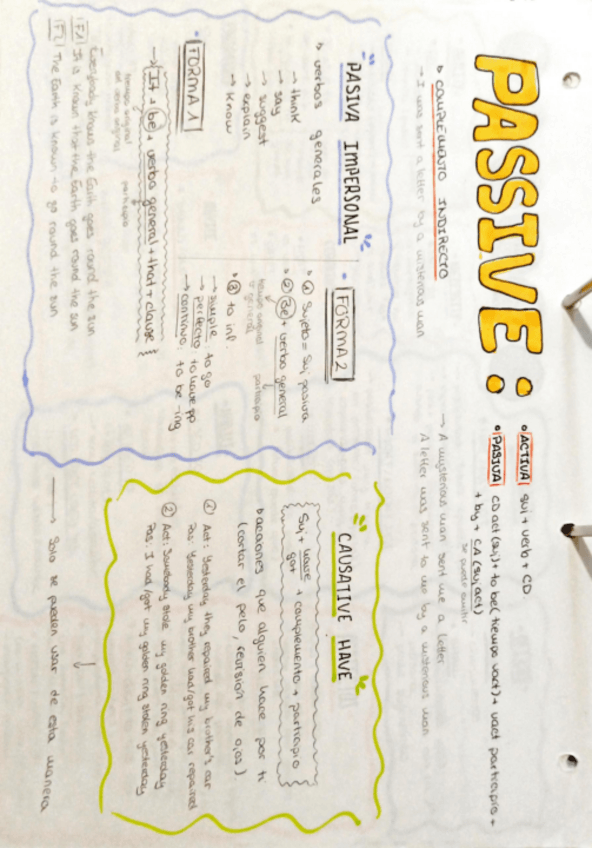 PASSIVE:
• ACTIVA suj + verb + CD.
• PASIVA CD act (suj) + to be (tiempo vact) + vact participio +
+ by + CA (suj act)
se puede omitir
COMPLEMENTO INDIRECTO
→ I was sent a letter by a misterious man
→ A mysterious man sent me a letter
A letter was sent to me by a misterious man
PASIVA IMPERSONAL
verbos generales
→ think
→ say
→ suggest
→ explain
→ know
FORMA 1
→ It + be + verbo general + that + clause
tiempo original
del verbo original
participio
Everybody knows the Earth goes round the sun
F1 It is known that the Earth goes round the sun
F2 The Earth is known to go round the sun
FORMA 2
① Sujeto = Suj pasiva
② Be + verbo general
tiempo original
v general
participio
③ to inf.
→ simple: to go
→ perfecto to have pp
→ continuo: to be -ing
CAUSATIVE HAVE
Suj + have + complemento + participio
got
acciones que alguien hace por ti
(cortar el pelo, revisión de
① Act: Yesterday they repaired my brother's car
Pas: Yesterday my brother had/got his car repaired
② Act: Somebody stole my golden ring yesterday
Pas: I had/got my golden ring stolen yesterday
→ Solo se pueden usar de esta manera